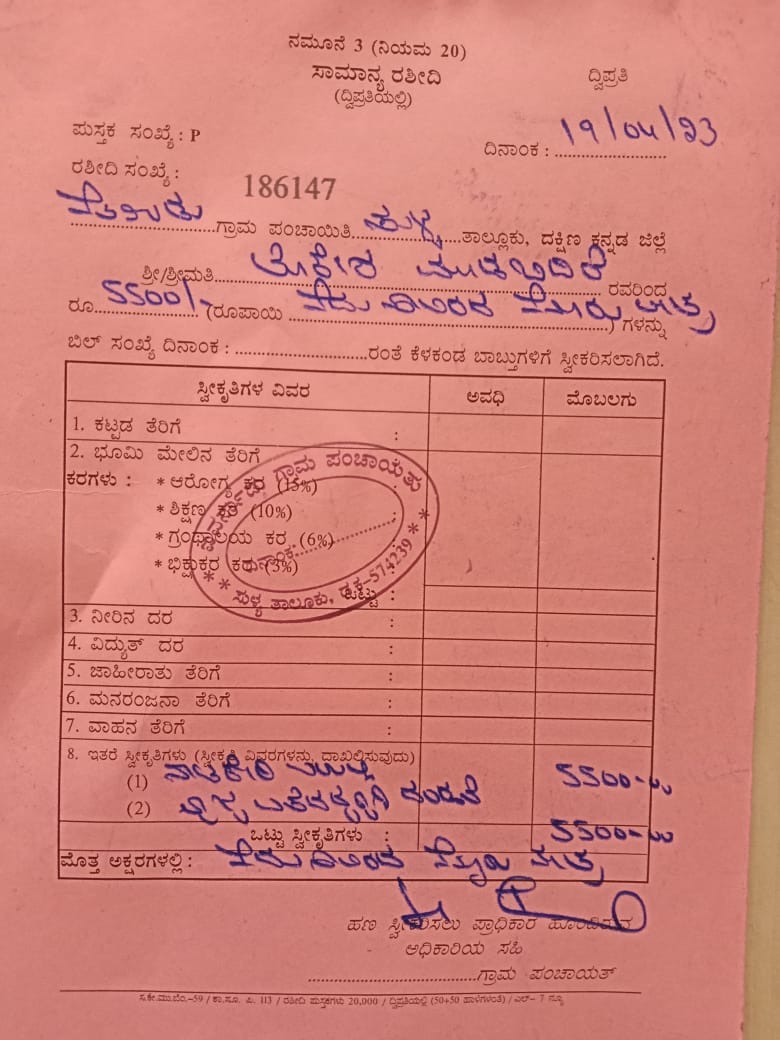 ನಮೂನೆ 3 (ನಿಯಮ 20)
ಸಾಮಾನ್ಯ ರಶೀದಿ
ದ್ವಿಪ್ರತಿ
(ದ್ವಿಪ್ರತಿಯಲ್ಲಿ)
ಪುಸ್ತಕ ಸಂಖ್ಯೆ : P
ದಿನಾಂಕ : 19/04/23
ರಶೀದಿ ಸಂಖ್ಯೆ : 186147
ಗ್ರಾಮ ಪಂಚಾಯಿತಿ ಸುಳ್ಯ ತಾಲ್ಲೂಕು, ದಕ್ಷಿಣ ಕನ್ನಡ ಜಿಲ್ಲೆ
ಶ್ರೀ/ಶ್ರೀಮತಿ ರವರಿಂದ
ರೂ. 5500/- (ರೂಪಾಯಿ ಐದು ಸಾವಿರದ ಐನೂರು ಮಾತ್ರ) ಗಳನ್ನು
ಬಿಲ್ ಸಂಖ್ಯೆ ದಿನಾಂಕ : ರಂತೆ ಕೆಳಕಂಡ ಬಾಬ್ತುಗಳಿಗೆ ಸ್ವೀಕರಿಸಲಾಗಿದೆ.
ಸ್ವೀಕೃತಿಗಳ ವಿವರ ಅವಧಿ ಮೊಬಲಗು
1. ಕಟ್ಟಡ ತೆರಿಗೆ :
2. ಭೂಮಿ ಮೇಲಿನ ತೆರಿಗೆ
ಕರಗಳು : * ಆರೋಗ್ಯ ಕರ (15%)
* ಶಿಕ್ಷಣ ಕರ (10%)
* ಗ್ರಂಥಾಲಯ ಕರ (6%)
* ಭಿಕ್ಷುಕರ ಕರ (3%)
ಒಟ್ಟು :
ಗ್ರಾಮ ಪಂಚಾಯತು
ದಿನಾಂಕ
* * ಸುಳ್ಯ ತಾಲೂಕು, ದ.ಕ-574239 * *
3. ನೀರಿನ ದರ :
4. ವಿದ್ಯುತ್ ದರ :
5. ಜಾಹೀರಾತು ತೆರಿಗೆ :
6. ಮನರಂಜನಾ ತೆರಿಗೆ :
7. ವಾಹನ ತೆರಿಗೆ :
8. ಇತರೆ ಸ್ವೀಕೃತಿಗಳು (ಸ್ವೀಕೃತಿ ವಿವರಗಳನ್ನು ದಾಖಲಿಸುವುದು)
(1) 5500-00
(2)
ಒಟ್ಟು ಸ್ವೀಕೃತಿಗಳು : 5500-00
ಮೊತ್ತ ಅಕ್ಷರಗಳಲ್ಲಿ : ಐದು ಸಾವಿರದ ಐನೂರು ಮಾತ್ರ
ಹಣ ಸ್ವೀಕರಿಸಲು ಪ್ರಾಧಿಕಾರ ಹೊಂದಿರುವ
ಅಧಿಕಾರಿಯ ಸಹಿ
ಗ್ರಾಮ ಪಂಚಾಯತ್
ಸ.ಕೇ.ಮು.ಬೆಂ.-59 / ಕಾ.ಸೂ. ಪಿ. 113 / ರಶೀದಿ ಪುಸ್ತಕಗಳು 20,000 / ದ್ವಿಪ್ರತಿಯಲ್ಲಿ (50+50 ಹಾಳೆಗಳಂತೆ) / ಎಲ್- 7 ನ್ಯೂ